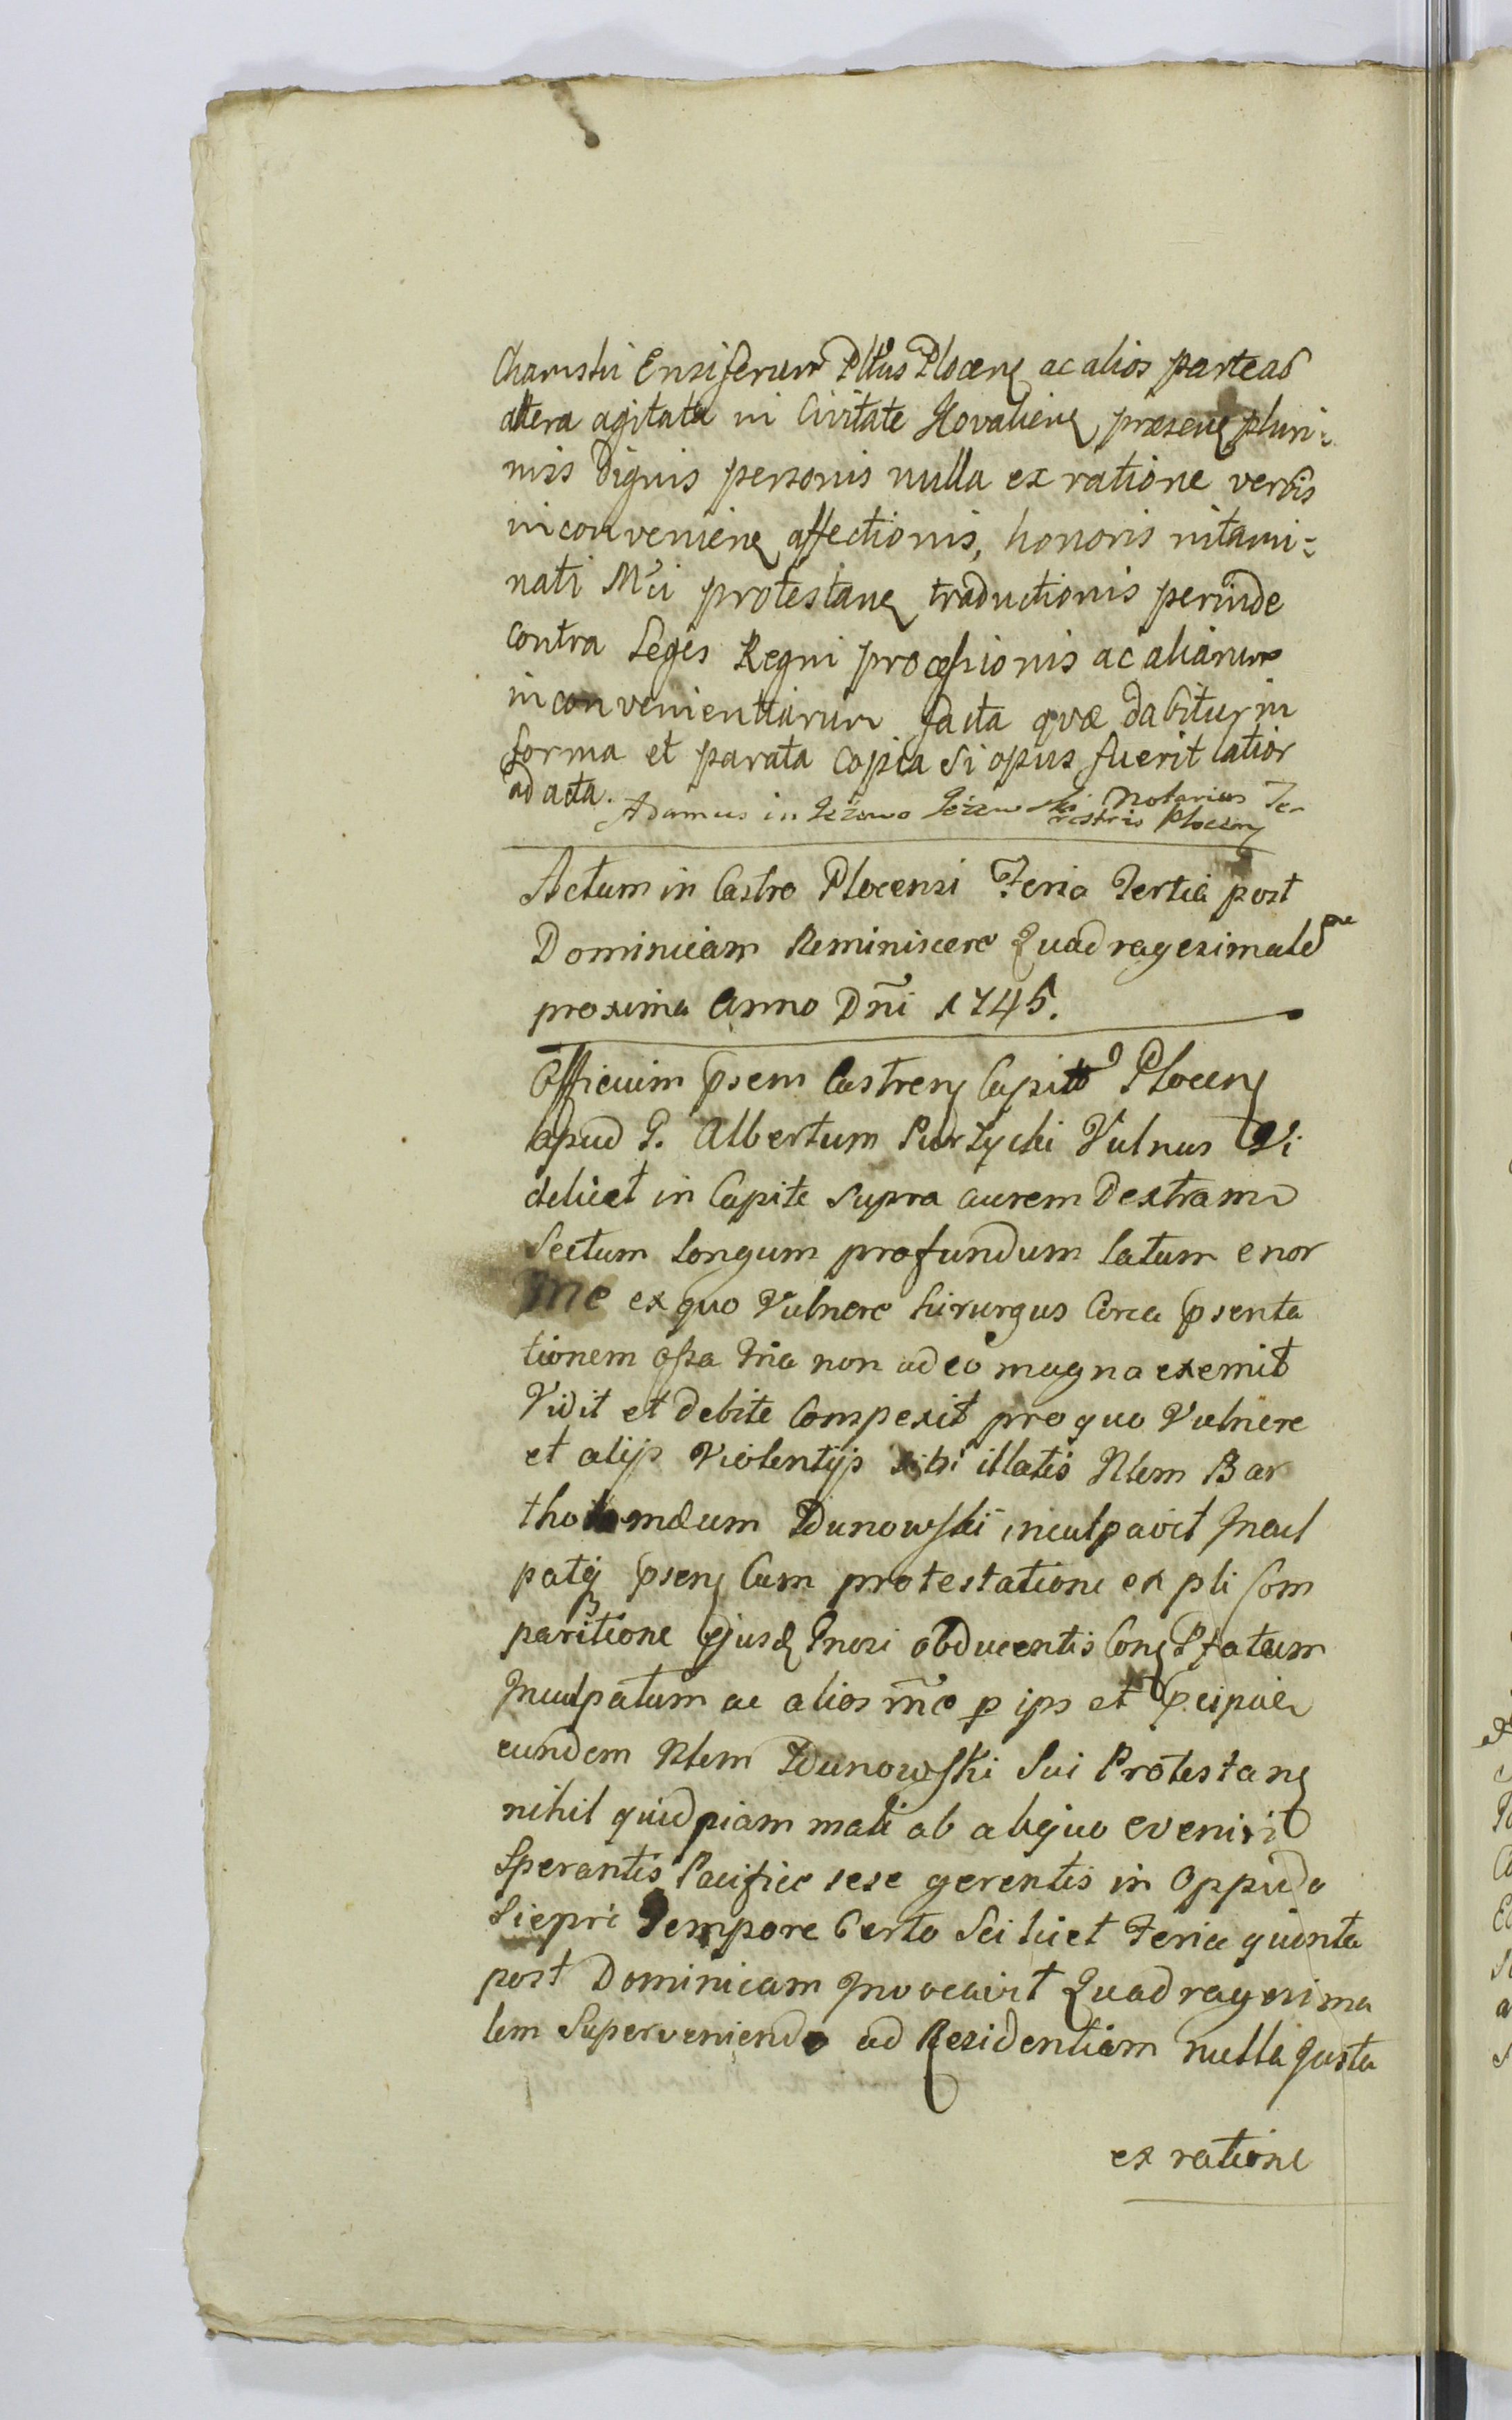 Charnski Ensiferum Pltus Plocen ac alios parte ab
altera agitata in Civitate Novalien, præsen pluri-
mis Dignis personis nulla ex ratione verbis
inconvenien affectionis, honoris
nati protestan traductionis perinde
contra Leges Regni processionis ac aliarum
inconvenientiarum facta quæ dabitur in
forma et parata copia Si opus fuerit latior
ad acta. Adamus in Notarius Ter
restris Plocen
Actum in Castro Plocensi Feria Tertia post
Dominicam Reminiscere Quadragesimalem
proxima Anno Dni 1745.
Officium psem Castren Capite Plocen
apud G. Albertum Vulnus Vi
delicet in Capite supra aurem Dextram
Sectum longum profundum latum enor
me ex quo Vulnere hirurgus Circa psenta
tionem ossa tria non adeo magna exemit
Vidit et debite Conspexit pro quo Vulnere
et alijs Violentijs sibi illatis Nlem Bar
tholomæum Zdunowski inculpavit Incul
patq psen Cum protestatione ex pli Com
paritione Ejusd obducentis Con Pfatum
Inculpatum ac alios p ips et
eundem Nlem Zdunowski Sui Protestan
nihil quidpiam mali ab aliquo eveniri
Sperantis Pacifice sese gerentis in Oppido
Siepri Tempore Certo Scilicet Feria quinta
post Dominicam Invocavit Quadragesima
lem Superveniendo ad Residentiam nulla Justa
ex ratione